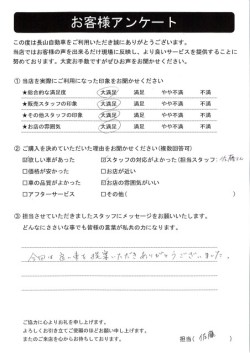 お客様アンケート
この度は長山自動車をご利用いただき誠にありがとうございます。
当店ではお客様の声を出来るだけ現場に反映し、より良いサービスを提供することに
努めております。大変お手数ですがぜひお声をお聞かせください。
① 当店を実際にご利用になった印象をお聞かせください
★総合的な満足度 大満足 満足 やや不満 不満
★販売スタッフの印象 大満足 満足 やや不満 不満
★その他スタッフの印象 大満足 満足 やや不満 不満
★お店の雰囲気 大満足 満足 やや不満 不満
② ご購入を決めていただいた理由をお聞かせください(複数回答可)
☑欲しい車があった ☑スタッフの対応がよかった(担当スタッフ: 佐藤
□価格が安かった □お店が近い
□車の品質がよかった ☑お店の雰囲気がいい
□アフターサービス □その他( )
③ 担当させていただきましたスタッフにメッセージをお願いいたします。
どんなにささいな事でも皆様の言葉が私共の力になります。
今回は良い車を提案いただきありがとうございました。
ご協力に心よりお礼を申し上げます。
よろしくお引き立てご愛顧のほどお願い申し上げます。
またのご来店を心からお待ちしております。
担当( 佐藤 )